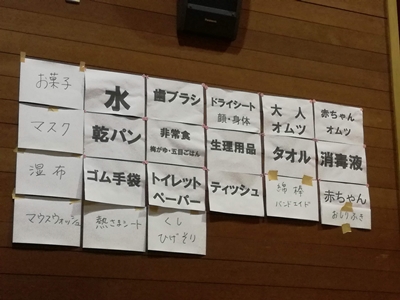 お菓子
水
歯ブラシ
ドライシート
顔・身体
大人
オムツ
赤ちゃん
オムツ
マスク
乾パン
非常食
梅がゆ・五目ごはん
生理用品
タオル
消毒液
湿布
ゴム手袋
トイレット
ペーパー
ティッシュ
綿棒
バンドエイド
赤ちゃん
おしりふき
マウスウォッシュ
熱さまシート
くし
ひげそり